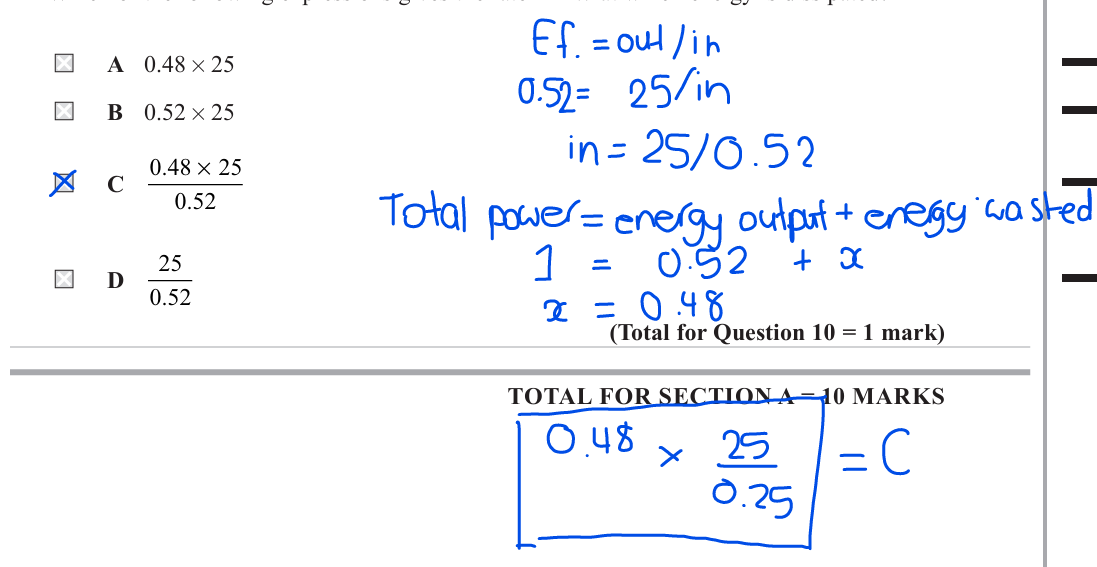 A 0.48 × 25
B 0.52 × 25
C 0.48 × 25
0.52
D 25
0.52
Ef. = out/in
0.52 = 25/in
in = 25/0.52
Total power = energy output + energy wasted
1 = 0.52 + x
x = 0.48
(Total for Question 10 = 1 mark)
TOTAL FOR SECTION A = 10 MARKS
0.48 × 25 = C
0.25